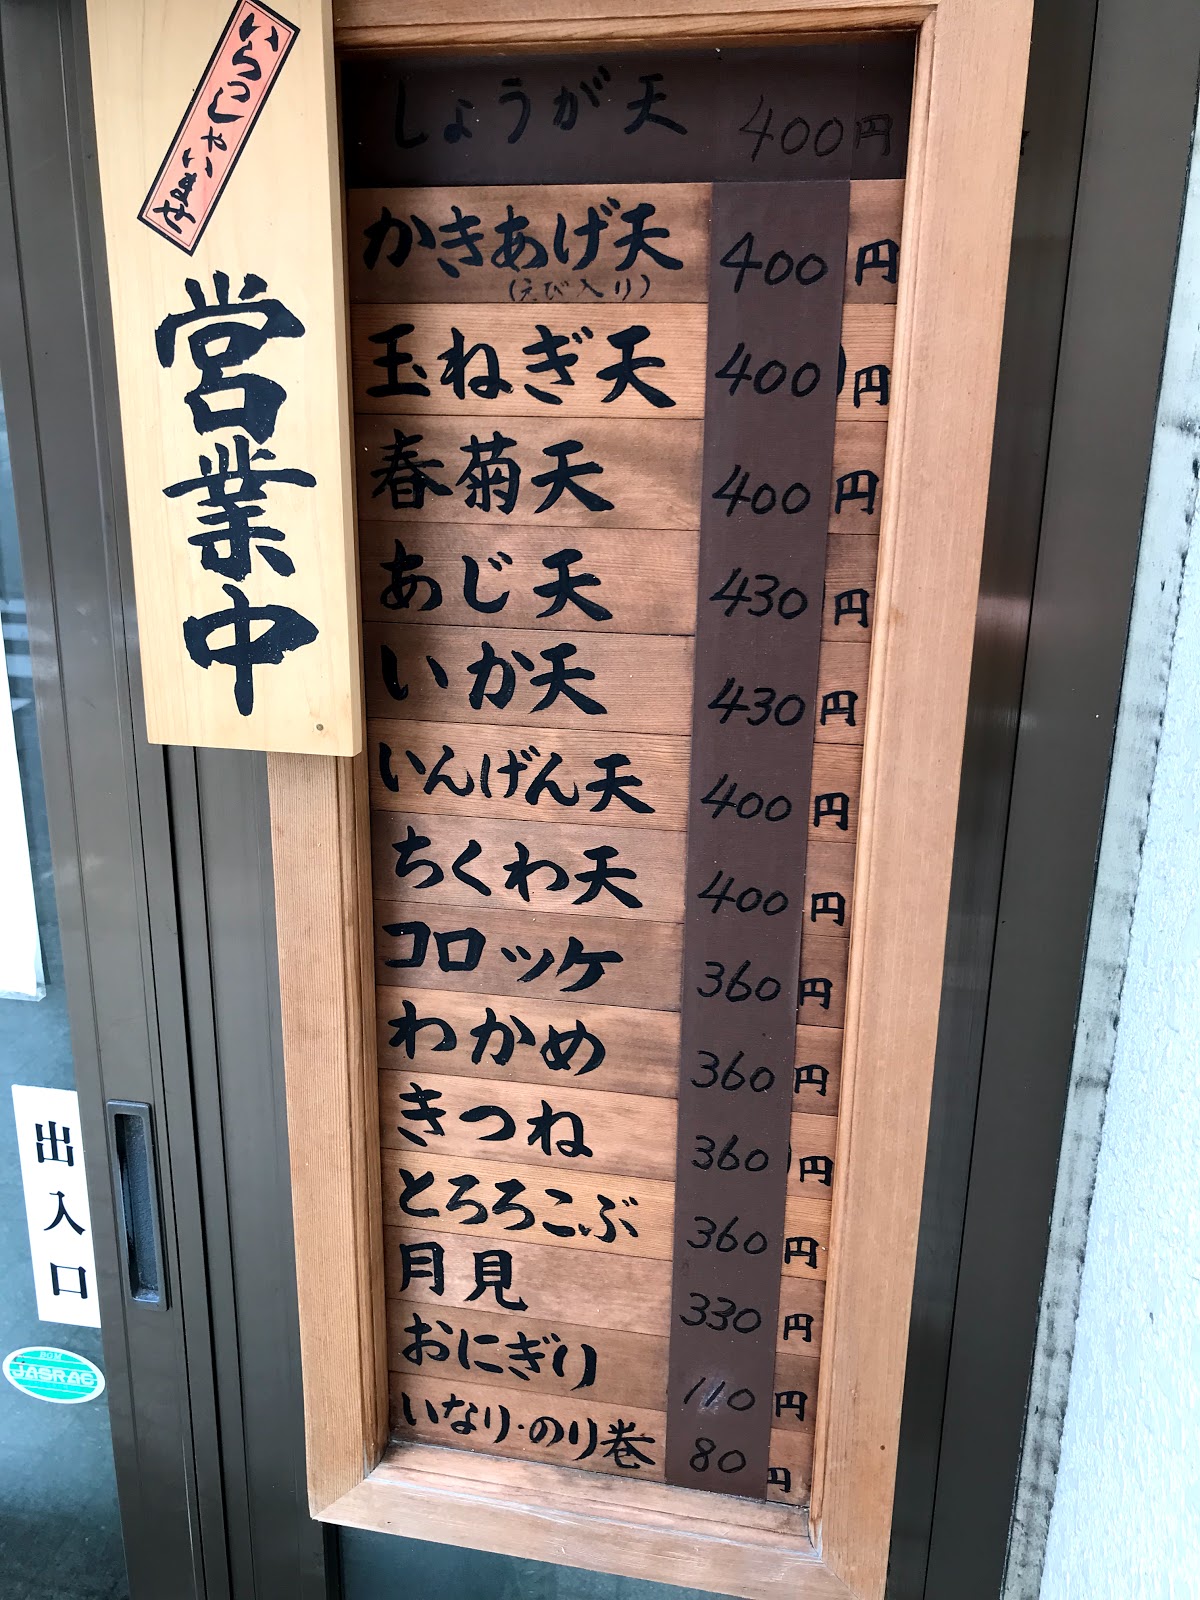 いらっしゃいませ
営業中
しょうが天 400円
かきあげ天 400円
(えび入り)
玉ねぎ天 400円
春菊天 400円
あじ天 430円
いか天 430円
いんげん天 400円
ちくわ天 400円
コロッケ 360円
わかめ 360円
きつね 360円
とろろこぶ 360円
月見 330円
おにぎり 110円
いなり・のり巻 80円
出入口
BGM
JASRAC